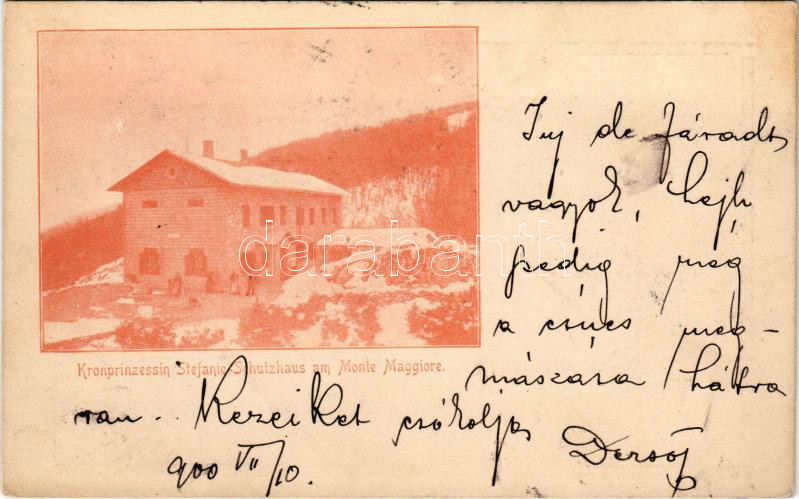 Juj de fáradt
vagyok, hejh
pedig még
a csúcs meg-
Kronprinzessin Stefanie-Schutzhaus am Monte Maggiore.
mászása hátra
van.. Kezeiket csókolja
900 VII/10. Dezső
darabanth